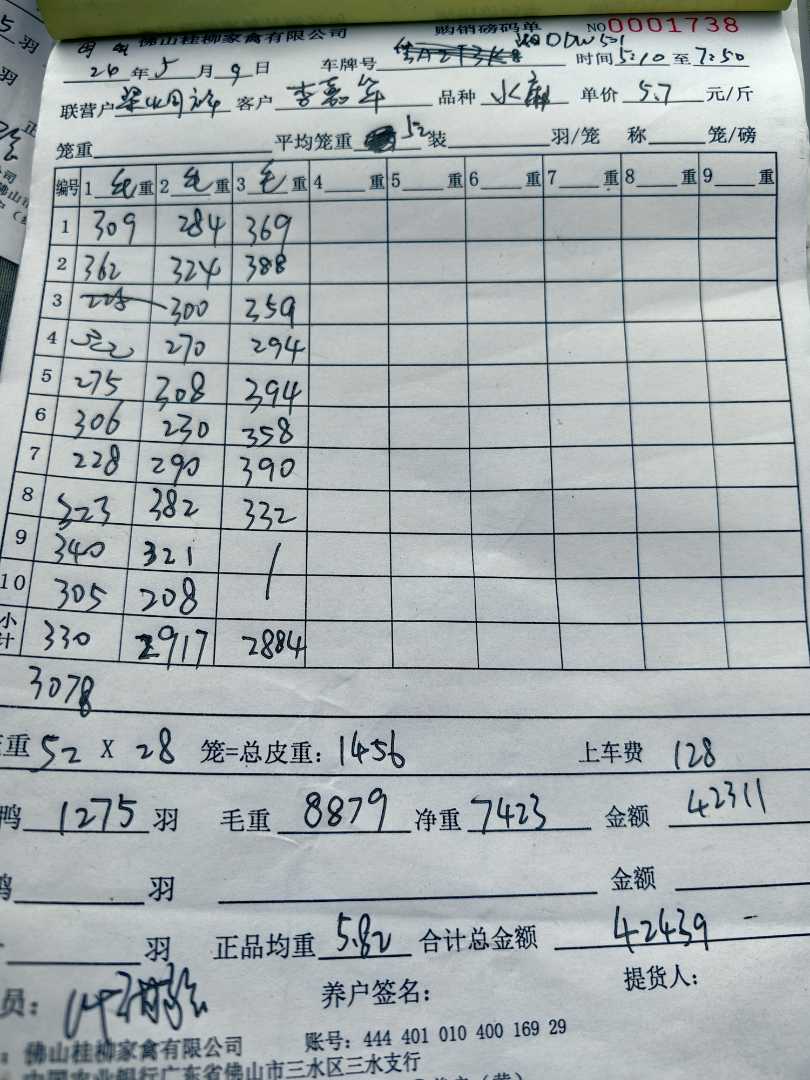 佛山桂柳家禽有限公司 购销磅码单 NO 0001738
24 年 5 月 9 日 车牌号 时间 5:10 至 7:50
联营户 客户 李嘉年 品种 水麻 单价 5.7 元/斤
笼重 平均笼重 52 装 羽/笼 称 笼/磅
编号 1 毛 重 2 毛 重 3 毛 重 4 重 5 重 6 重 7 重 8 重 9 重
1 309 284 369
2 362 324 388
3 300 359
4 270 294
5 275 308 394
6 306 230 358
7 228 290 390
8 323 382 332
9 340 321 /
10 305 208
小计 330 2917 2884
3078
重 52 X 28 笼=总皮重: 1456 上车费 128
鸭 1275 羽 毛重 8879 净重 7423 金额 42311
鸭 羽 金额
羽 正品均重 5.82 合计总金额 42439 -
员: 养户签名: 提货人:
: 佛山桂柳家禽有限公司 账号: 444 401 010 400 169 29
中国农业银行广东省佛山市三水区三水支行